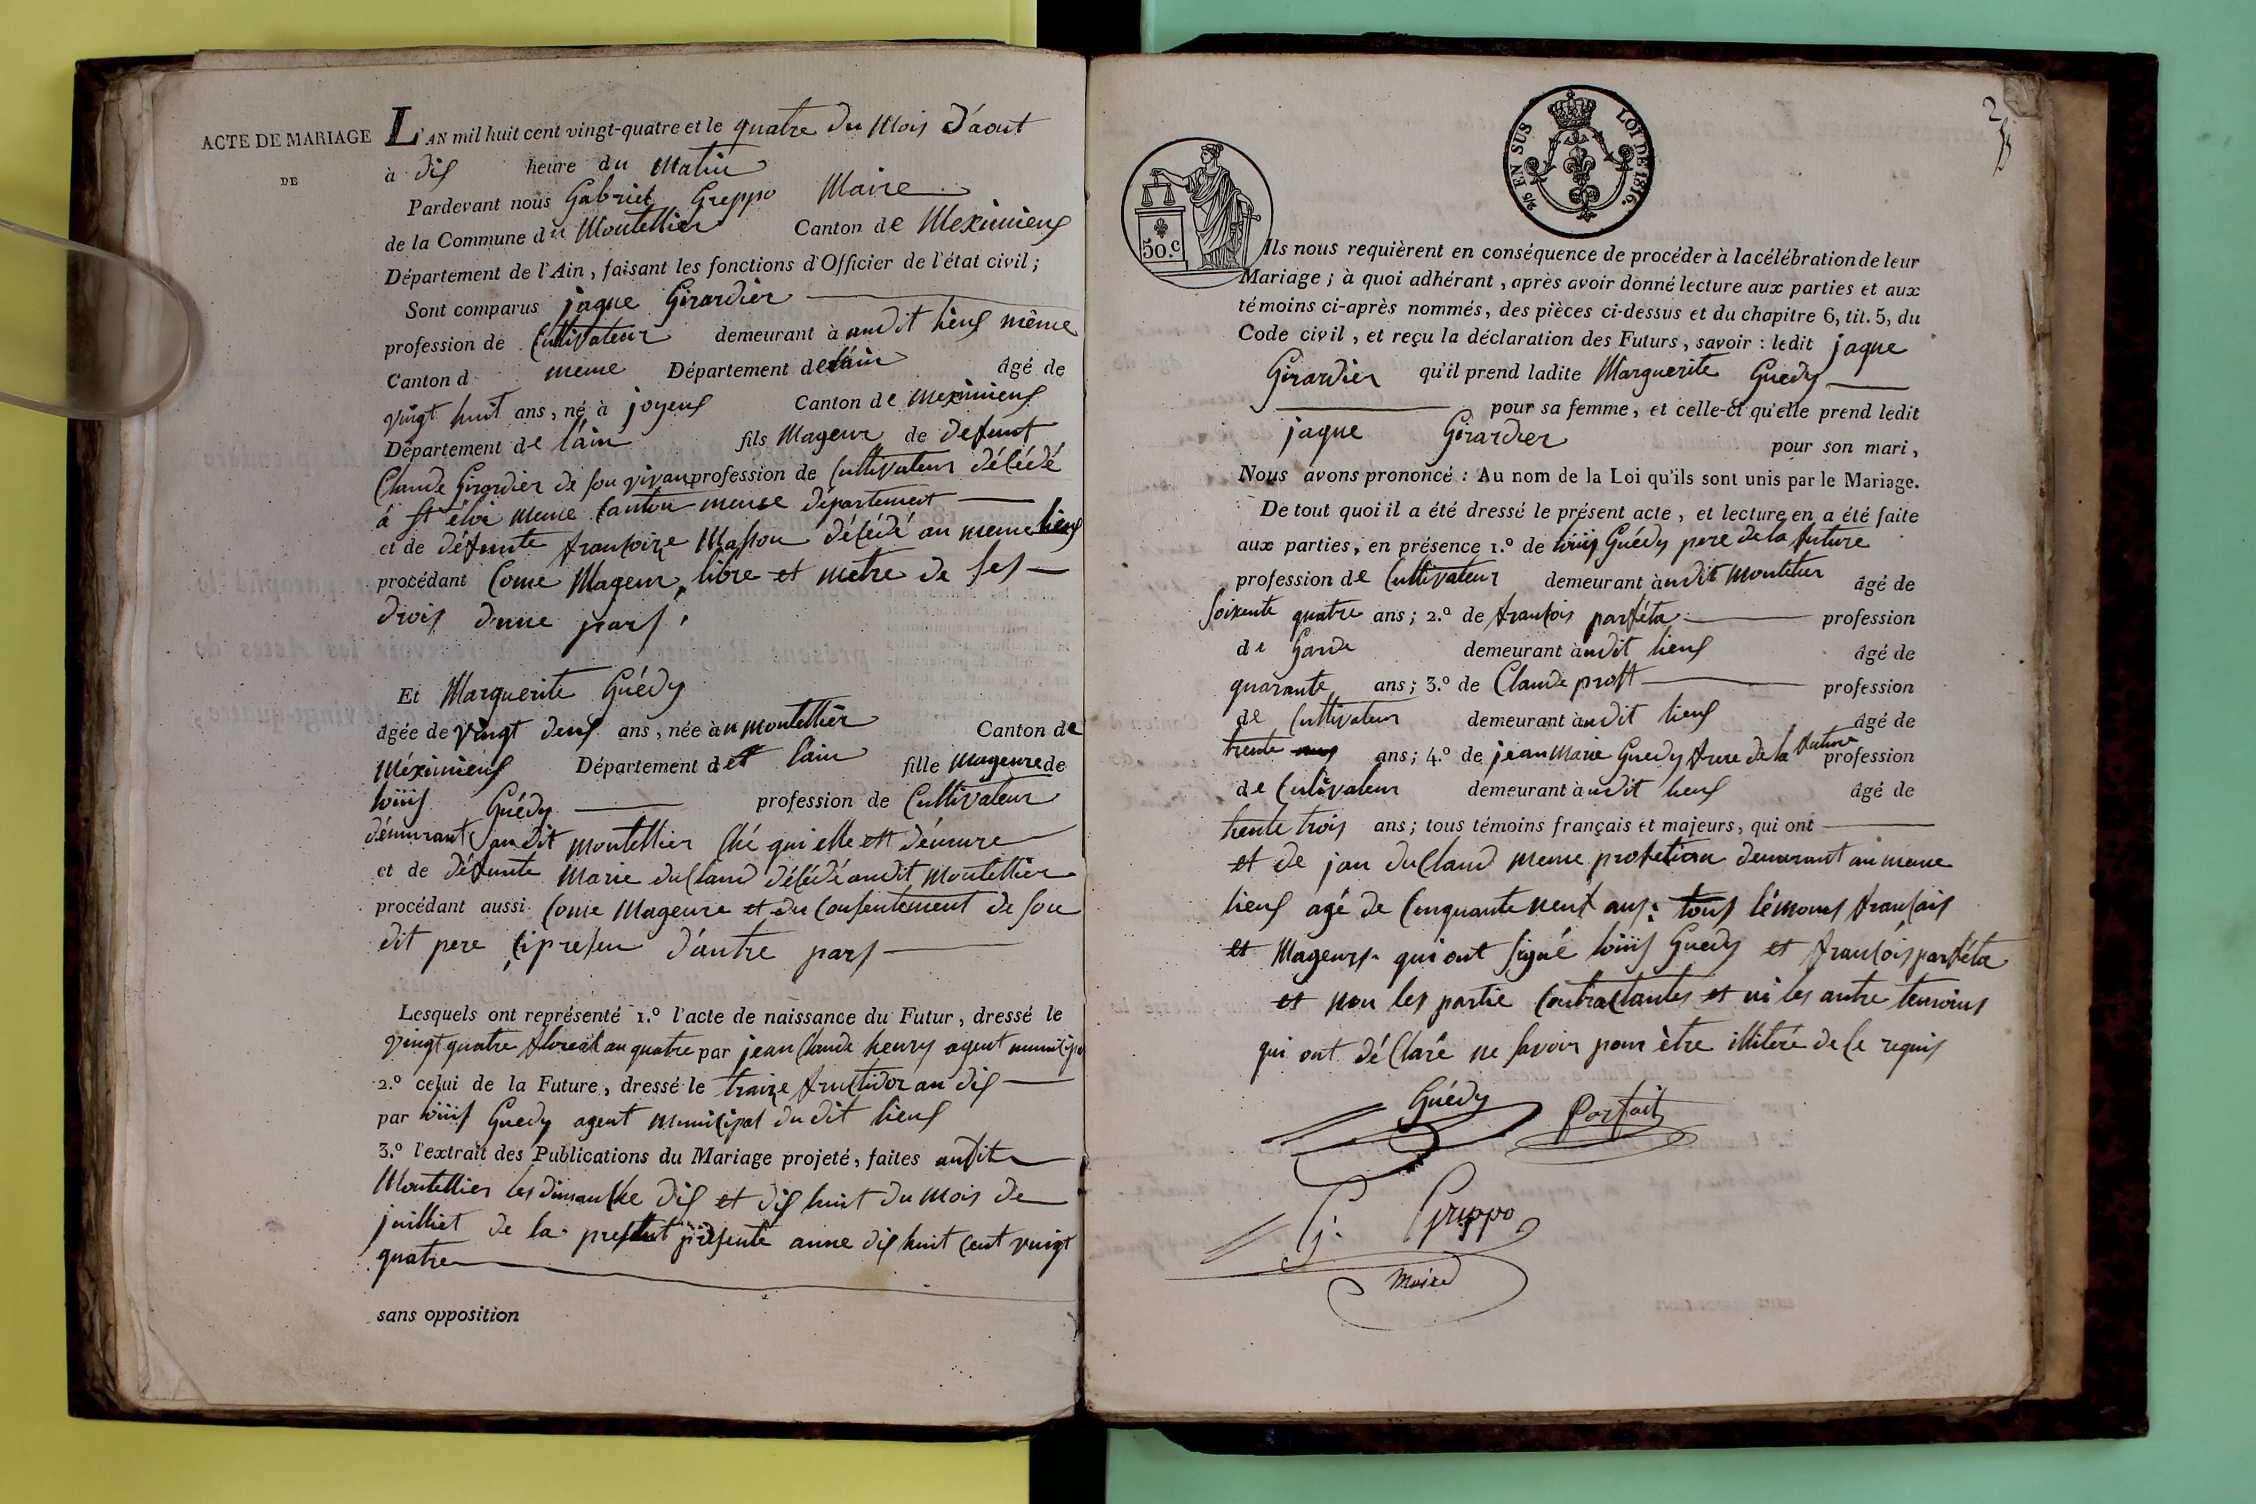 ACTE DE MARIAGE
DE
L'AN mil huit cent vingt-quatre et le quatre du Mois d'aout
à dix heure du Matin
Pardevant nous Gabriel Greppo Maire
de la Commune du Montellier Canton de Meximieux
Département de l'Ain, faisant les fonctions d'Officier de l'état civil;
Sont comparus jaque Girardier
profession de Cultivateur demeurant à audit lieux même
Canton d meme Département de lain âgé de
vingt huit ans, né à joyeux Canton de meximieux
Département de l'ain fils Mageur de defunt
Claude Girardier de son vivan profession de Cultivateur décédé
à St éloi meme Canton meme département
et de défunte françoize Masson décédé au meme lieux
procédant Come Mageur, libre et metre de ses
drois dune pars
Et Marguerite Guédy
âgée de vingt deux ans, née au montellier Canton de
Méximieux Département de lain fille mageure de
loüis Guédy profession de Cultivateur
démurant audit montellier ché qui elle est démure
et de défunte Marie duclaud décédé audit Montellier
procédant aussi Come Mageure et du Consentement de son
dit pere ci presen d'autre pars
Lesquels ont représenté 1.º l'acte de naissance du Futur, dressé le
vingt quatre floreal an quatre par jean Claude henry agent municipa
2.º celui de la Future, dressé le traize fructidor an dix
par loüis Guedy agent municipal du dit lieux
3.º l'extrait des Publications du Mariage projeté, faites audit
Montellier les dimanche dix et dix huit du mois de
juilliet de la présente anne dix huit cent vingt
quatre
sans opposition
2
50.c
2/5 EN SUS LOI DE 1816.
Ils nous requièrent en conséquence de procéder à la célébration de leur
Mariage; à quoi adhérant, après avoir donné lecture aux parties et aux
témoins ci-après nommés, des pièces ci-dessus et du chapitre 6, tit. 5, du
Code civil, et reçu la déclaration des Futurs, savoir: ledit jaque
Girardier qu'il prend ladite Marguerite Guedy
pour sa femme, et celle-ci qu'elle prend ledit
jaque Girardier pour son mari,
Nous avons prononcé: Au nom de la Loi qu'ils sont unis par le Mariage.
De tout quoi il a été dressé le présent acte, et lecture en a été faite
aux parties, en présence 1.º de loüis Guédy pere de la future
profession de Cultivateur demeurant audit montelier âgé de
soixente quatre ans; 2.º de françois parféta profession
de Garde demeurant audit lieux âgé de
quarante ans; 3.º de Claude prost profession
de Cultivateur demeurant audit lieux âgé de
trente ans; 4.º de jean marie Guedy frere de la future profession
de Cultivateur demeurant audit lieux âgé de
trente trois ans; tous témoins français et majeurs, qui ont
et de jan duclaud meme profetion demurant au meme
lieux agé de Cinquante neuf ans; tous témoins français
et Mageurs qui ont signé loüis Guédy et françois parféta
et non les partie Contractantes et ni les autre temoins
qui ont déclaré ne savoir pour être illitéré de ce requis
Guédy Parfait
G. Greppo
maire